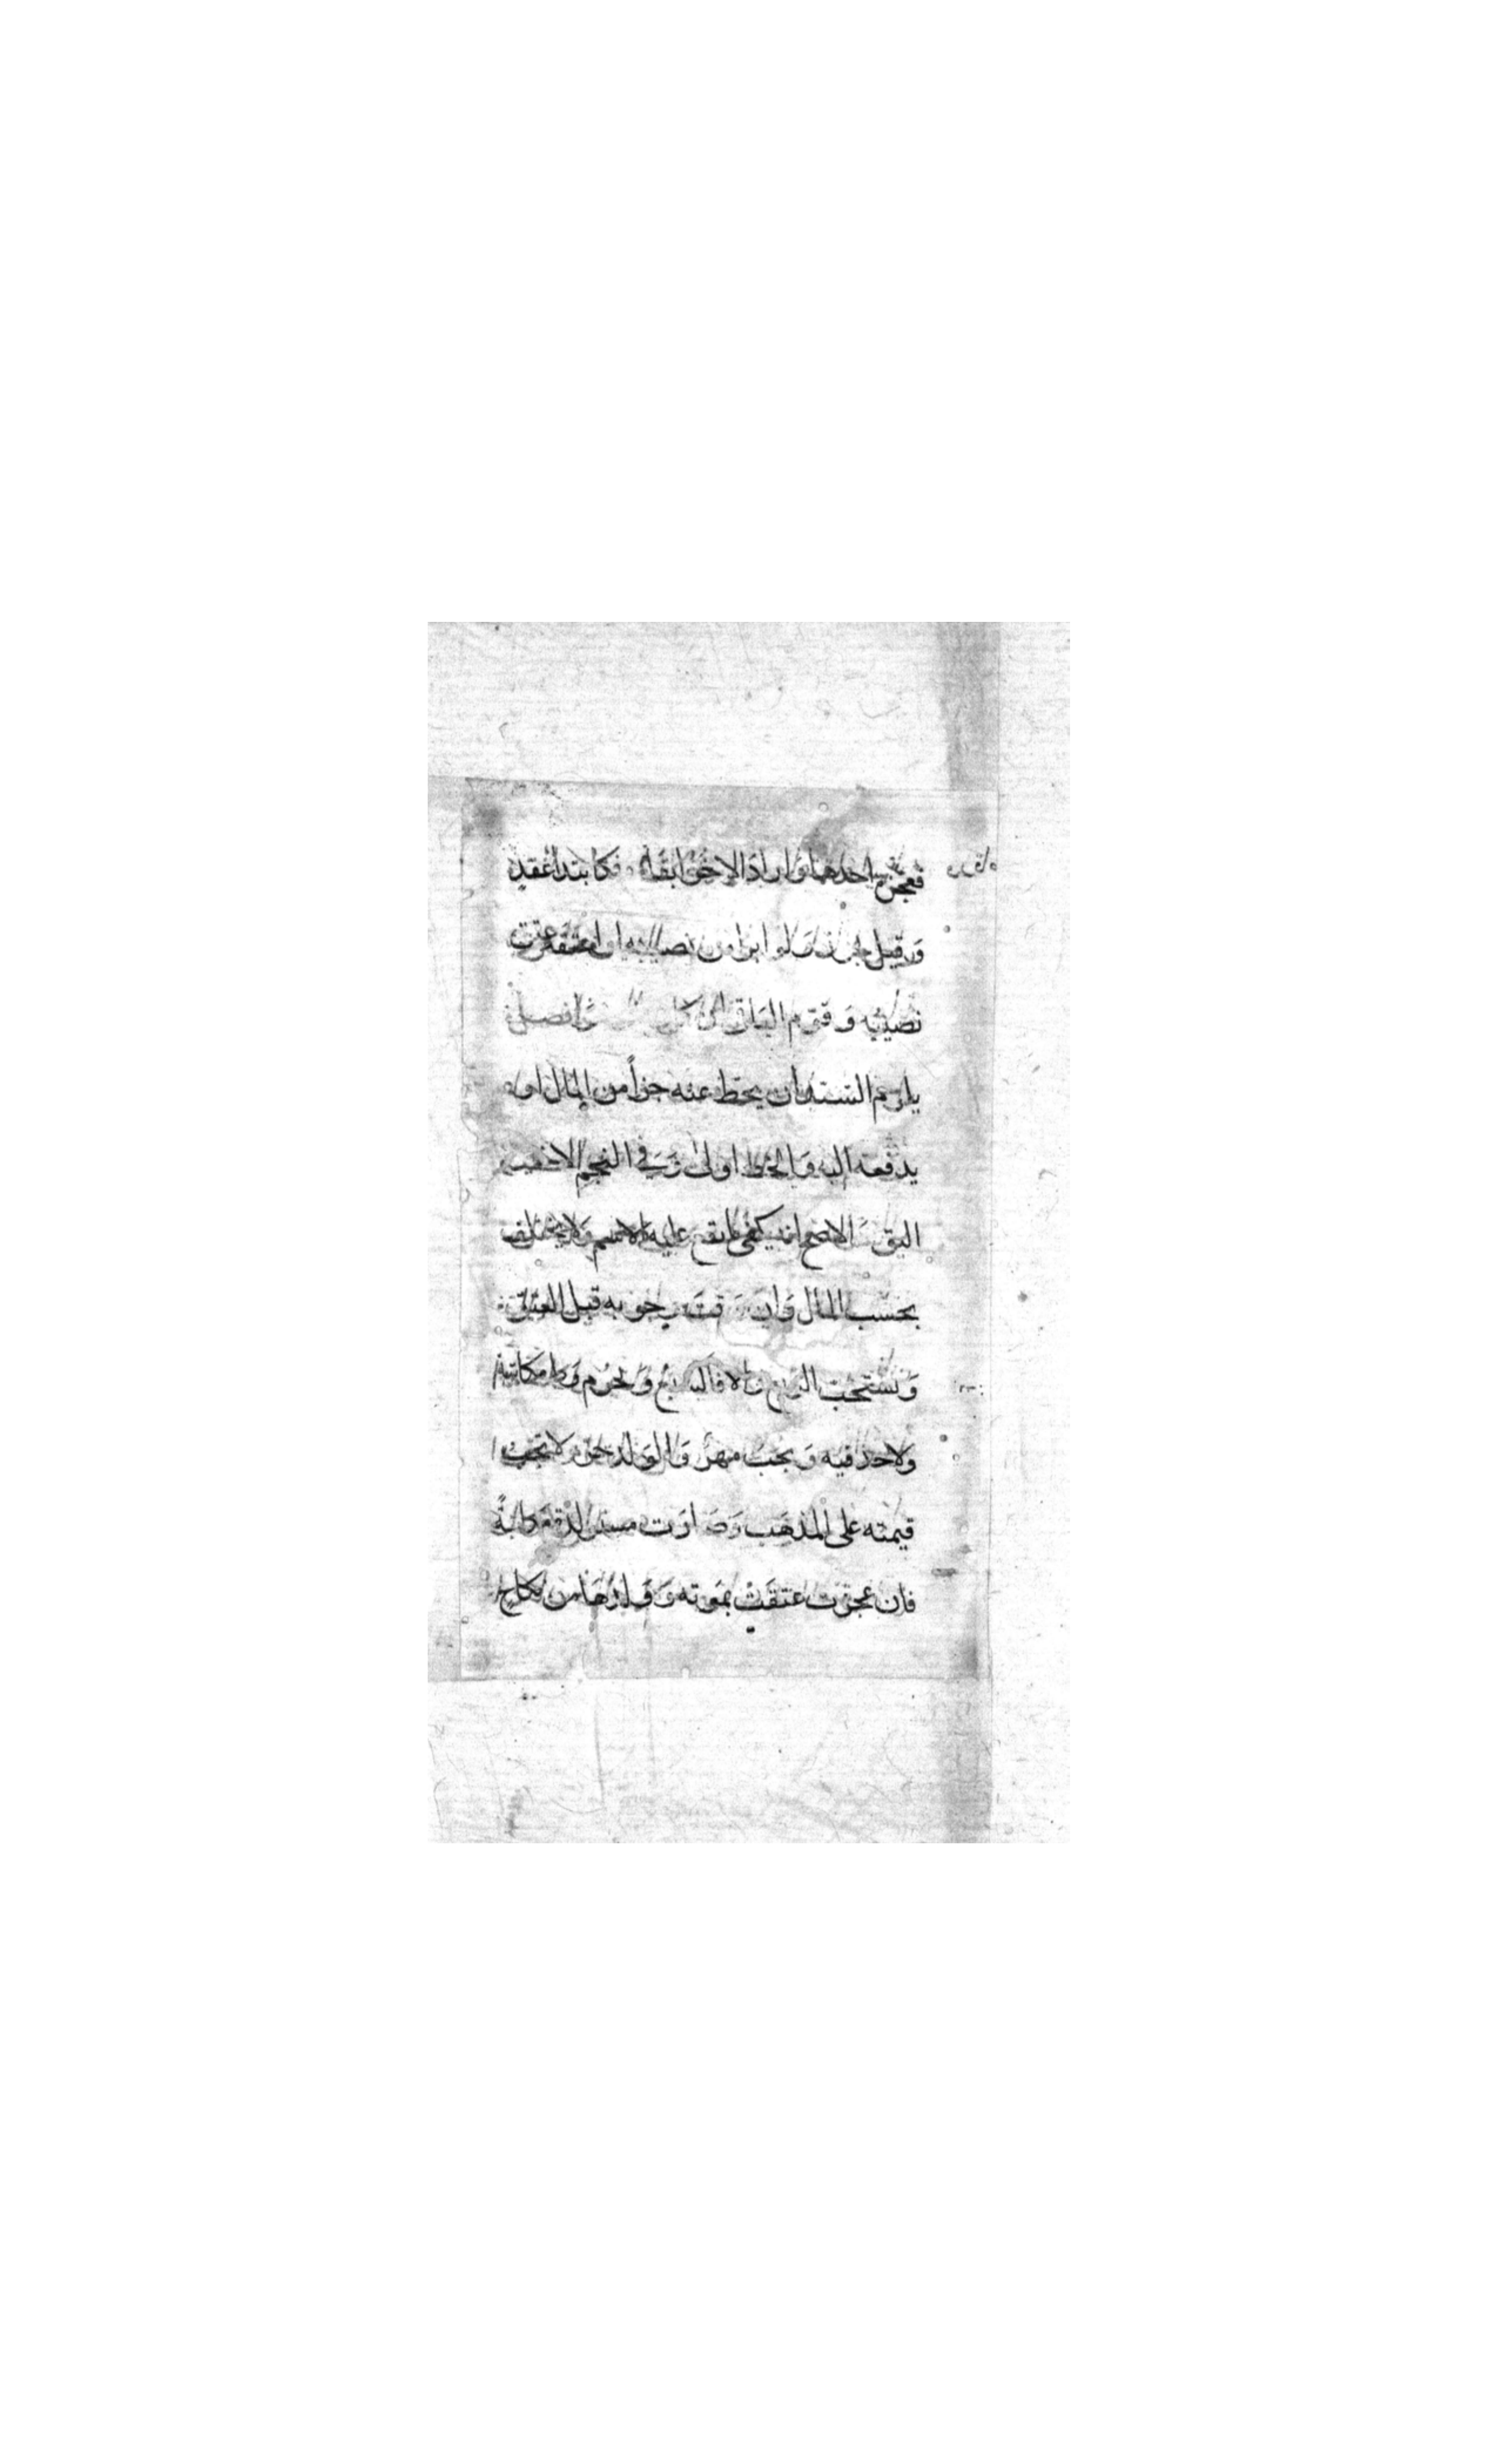 فعجزه احدهما واراد الاخر ابقاه فكابتداء عقد
وقيل يجوز ولو ابرا من نصيبه او اعتقه عتق
نصيبه وقوم الباقي ان كان فصل
يلزم السيد أن يحط عنه جزأ من المال او
يدفعه اليه والحط اولى وفي النجم الاخير
اليق الاصح انه يكفي ما يقع عليه الاسم ولا يختلف
بحسب المال وان وقت وجوبه قبل العتق
وتستحب الربع والا فالسبع وتحرم وط مكاتبته
ولا حد فيه ويجب مهر والولد حر ولا تجب
قيمته على المذهب وصارت مستولدة مكاتبة
فان عجزت عتقت بموته وولدها من نكاح